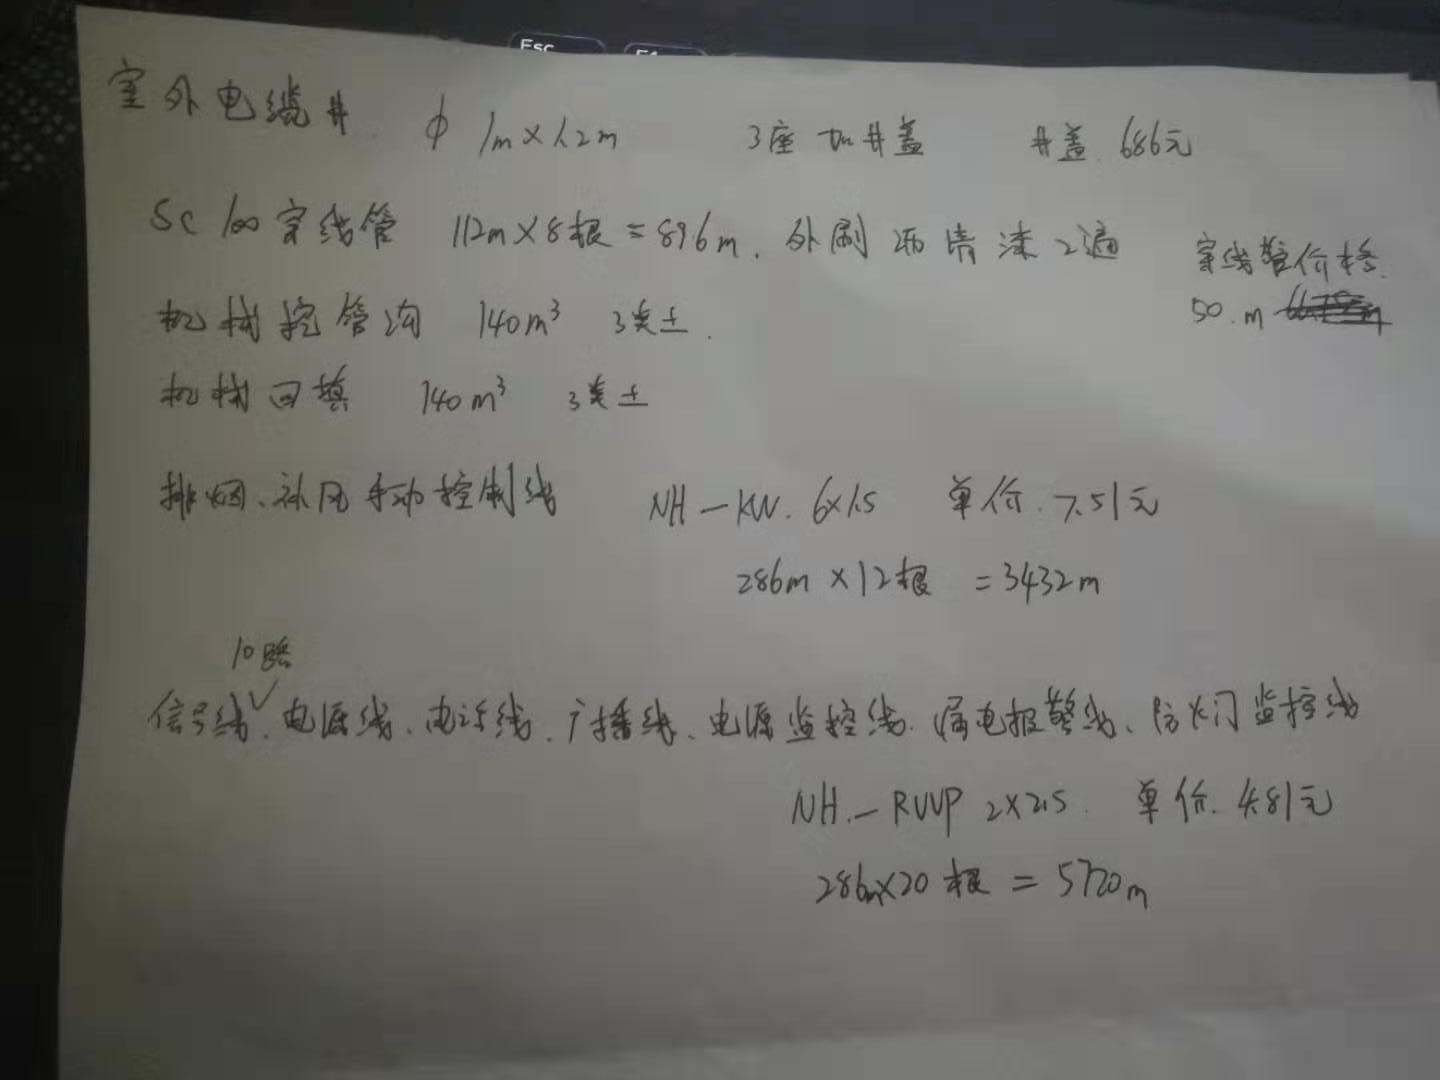 Esc
室外电缆井 φ 1m×1.2m 3座 加井盖 井盖 686元
SC 100 穿线管 112m×8根=896m. 外刷沥青漆2遍
穿线管价格.
50.m
机械挖管沟 140m³ 3类土.
机械回填 140m³ 3类土
排烟、补风手动控制线 NH-KVV. 6×1.5 单价. 7.51元
286m×12根 =3432m
10路
信号线、电源线、电话线、广播线、电源监控线、漏电报警线、防火门监控线
NH.-RVVP 2×2.5. 单价. 4.81元
286m×20根 = 5720m